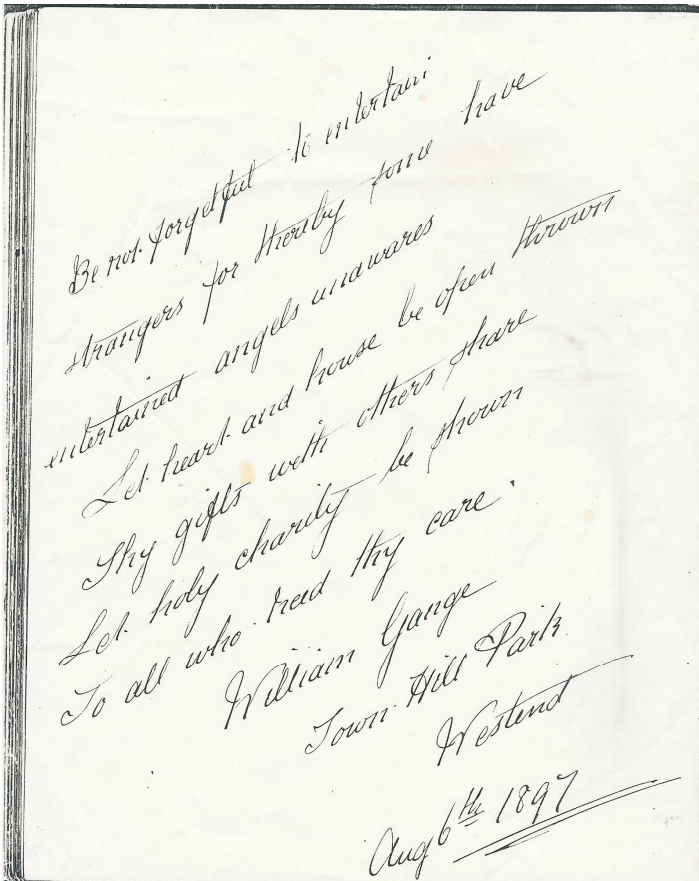 Be not forgetful to entertain
strangers for thereby some have
entertained angels unawares
Let heart and house be open thrown
Thy gifts with others share
Let holy charity be shown
To all who need thy care.
William Gange
Town Hill Park
Westend
Aug 6th 1897